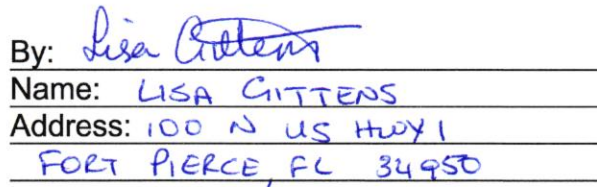 By: Lisa Gittens
Name: LISA GITTENS
Address: 100 N US HWY 1
FORT PIERCE, FL 34950